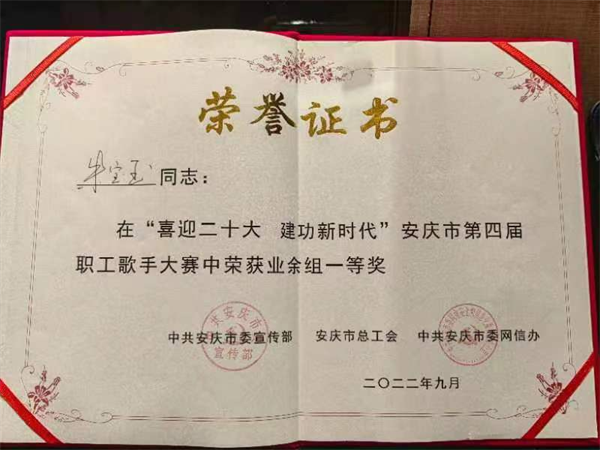 荣誉证书
朱宝玉同志：
在“喜迎二十大 建功新时代”安庆市第四届
职工歌手大赛中荣获业余组一等奖
中共安庆市委宣传部 安庆市总工会 中共安庆市委网信办
二〇二二年九月